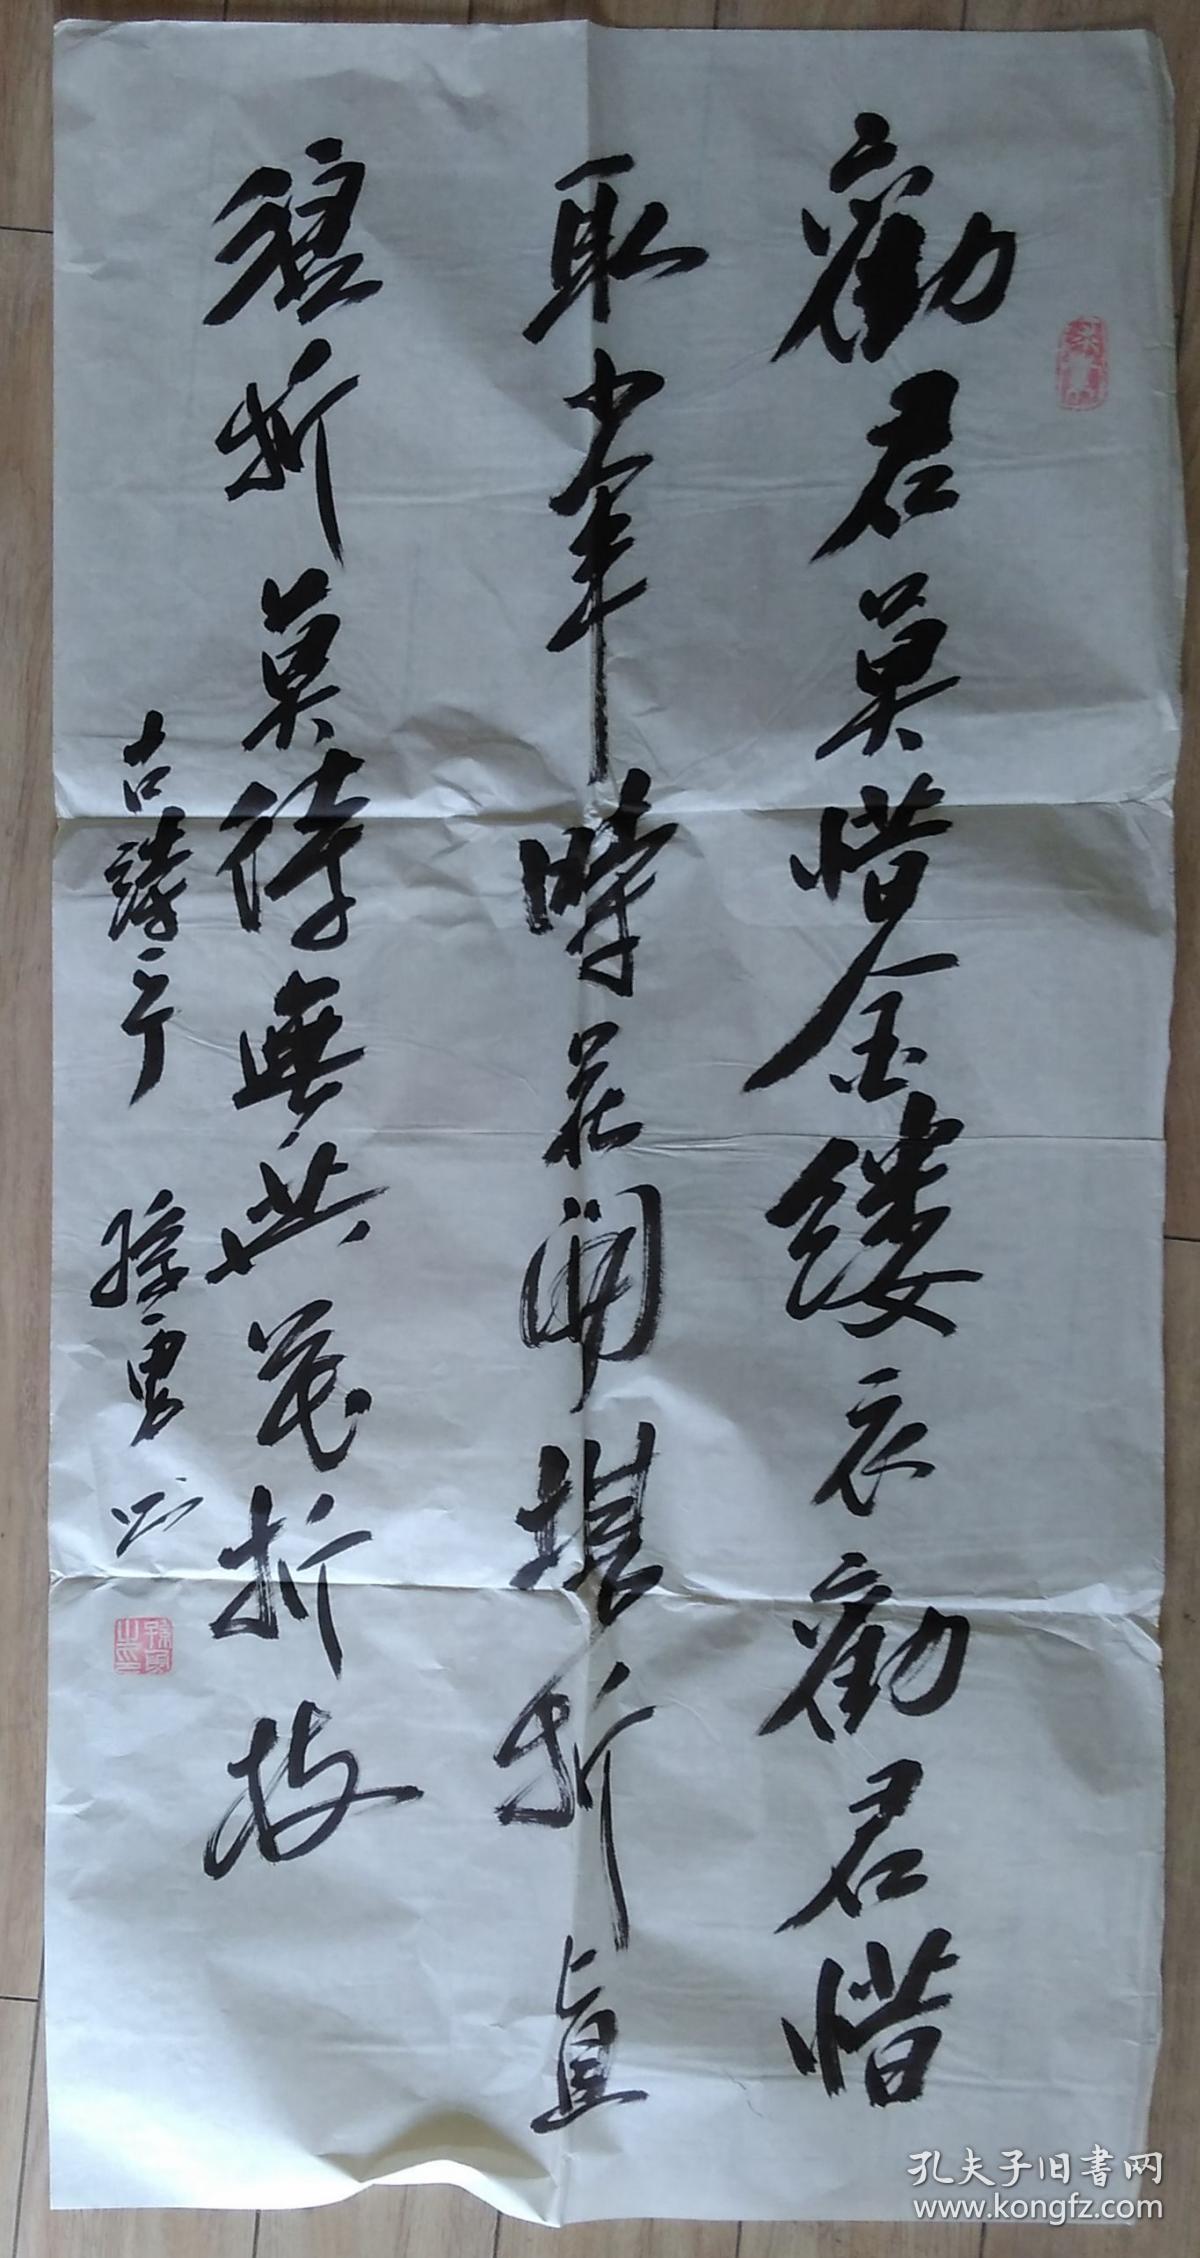 勸君莫惜金缕衣勸君惜
取少年時花開堪折直
須折莫待無花折枝
古詩一首 孫勇书
孫勇之印
孔夫子旧書网
www.kongfz.com